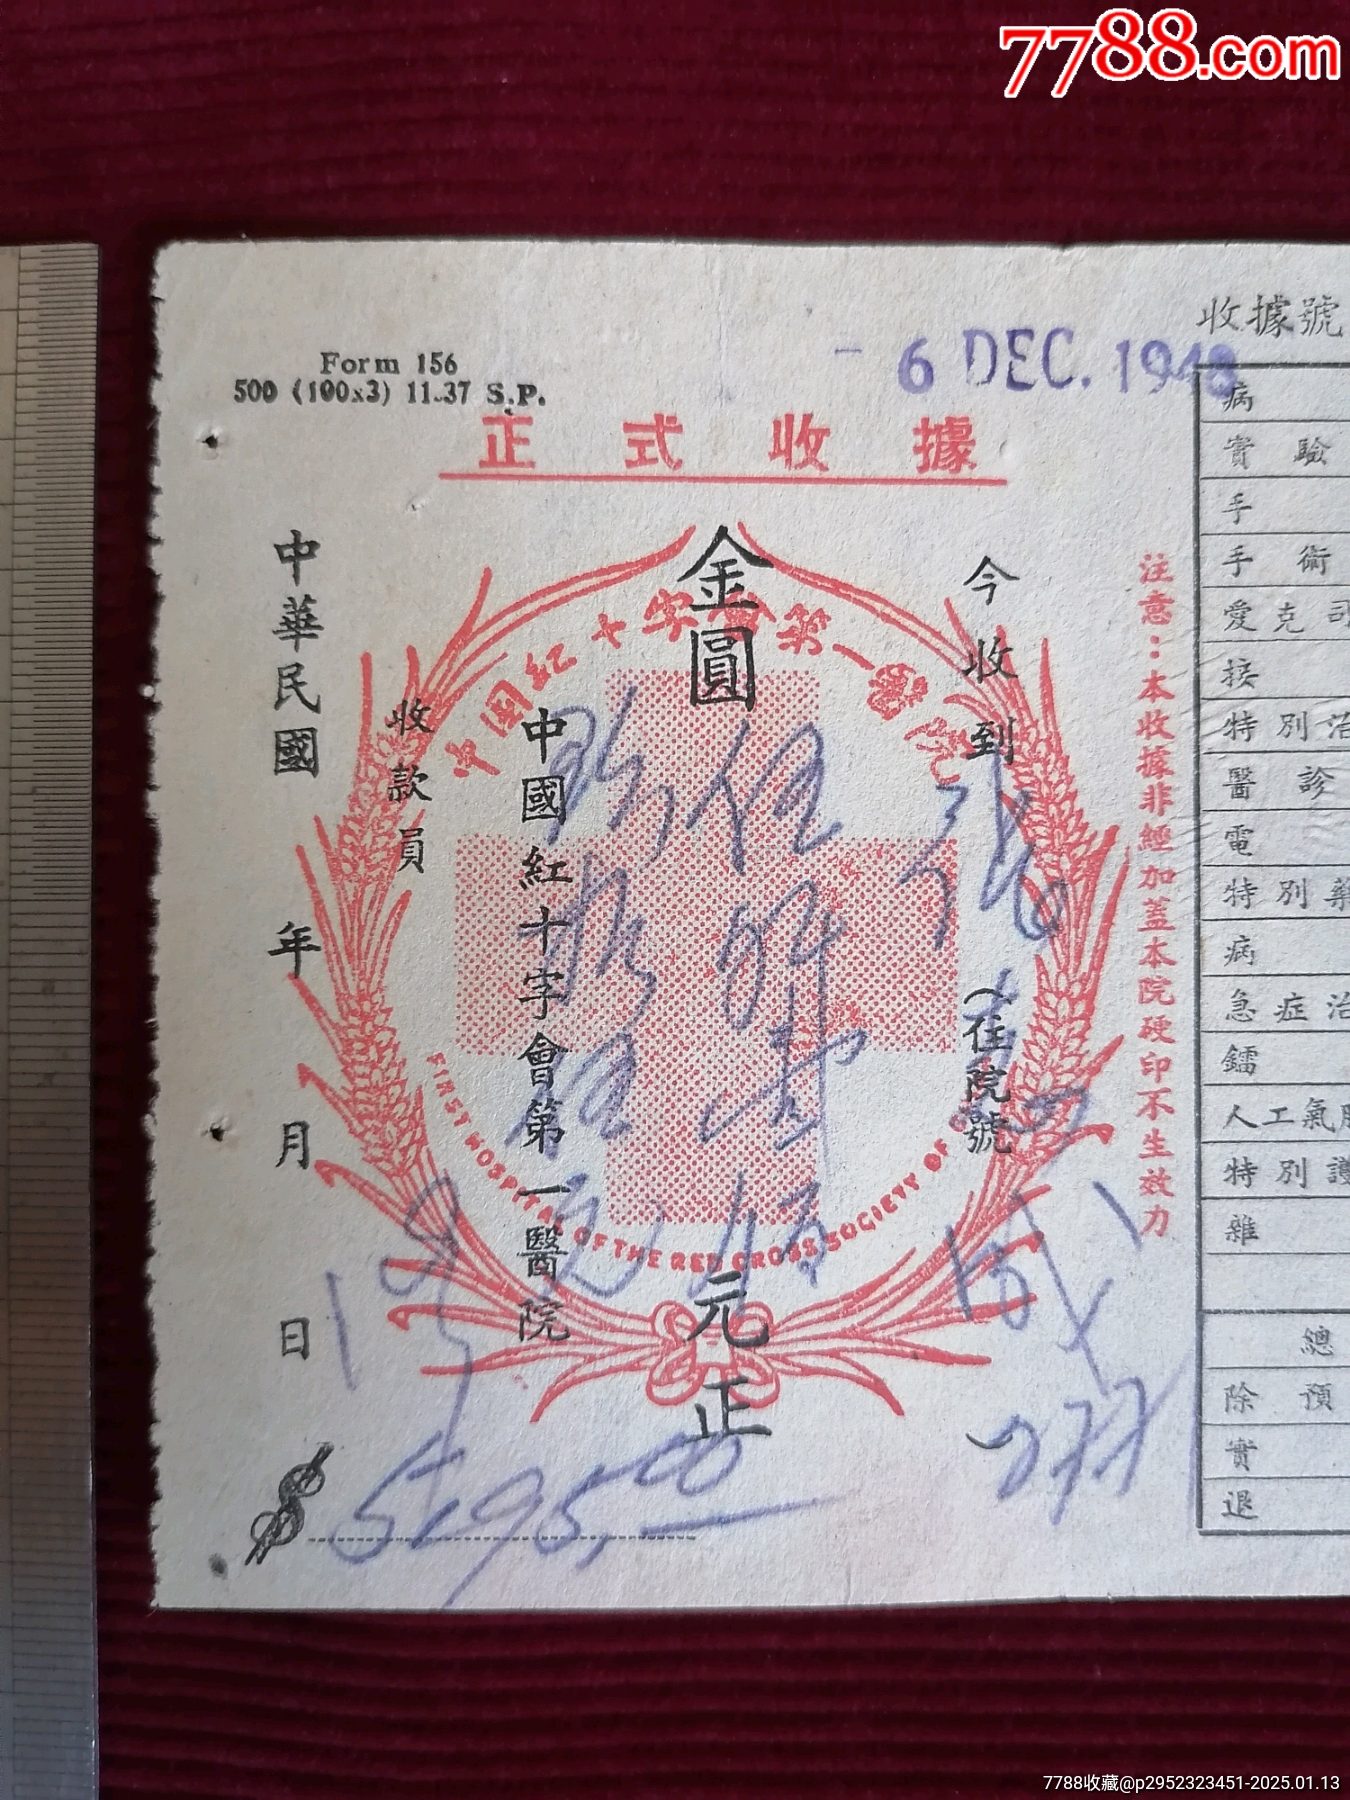 7788.com
Form 156
500 (100x3) 11-37 S.P.
- 6 DEC. 1948
正式收據
收據號
注意：本收據非經加蓋本院硬印不生效力
今收到
（住院號
277）
金圓
元正
中國紅十字會第一醫院
收款員
中華民國 年 月 日
$ 595.00
中國紅十字會第一醫院
FIRST HOSPITAL OF THE RED CROSS SOCIETY OF
病
實驗
手
手術
愛克司
接
特別治
醫診
電
特別藥
病
急症治
鐳
人工氣
特別護
雜
總
除預
實
退
7788收藏@p2952323451-2025.01.13